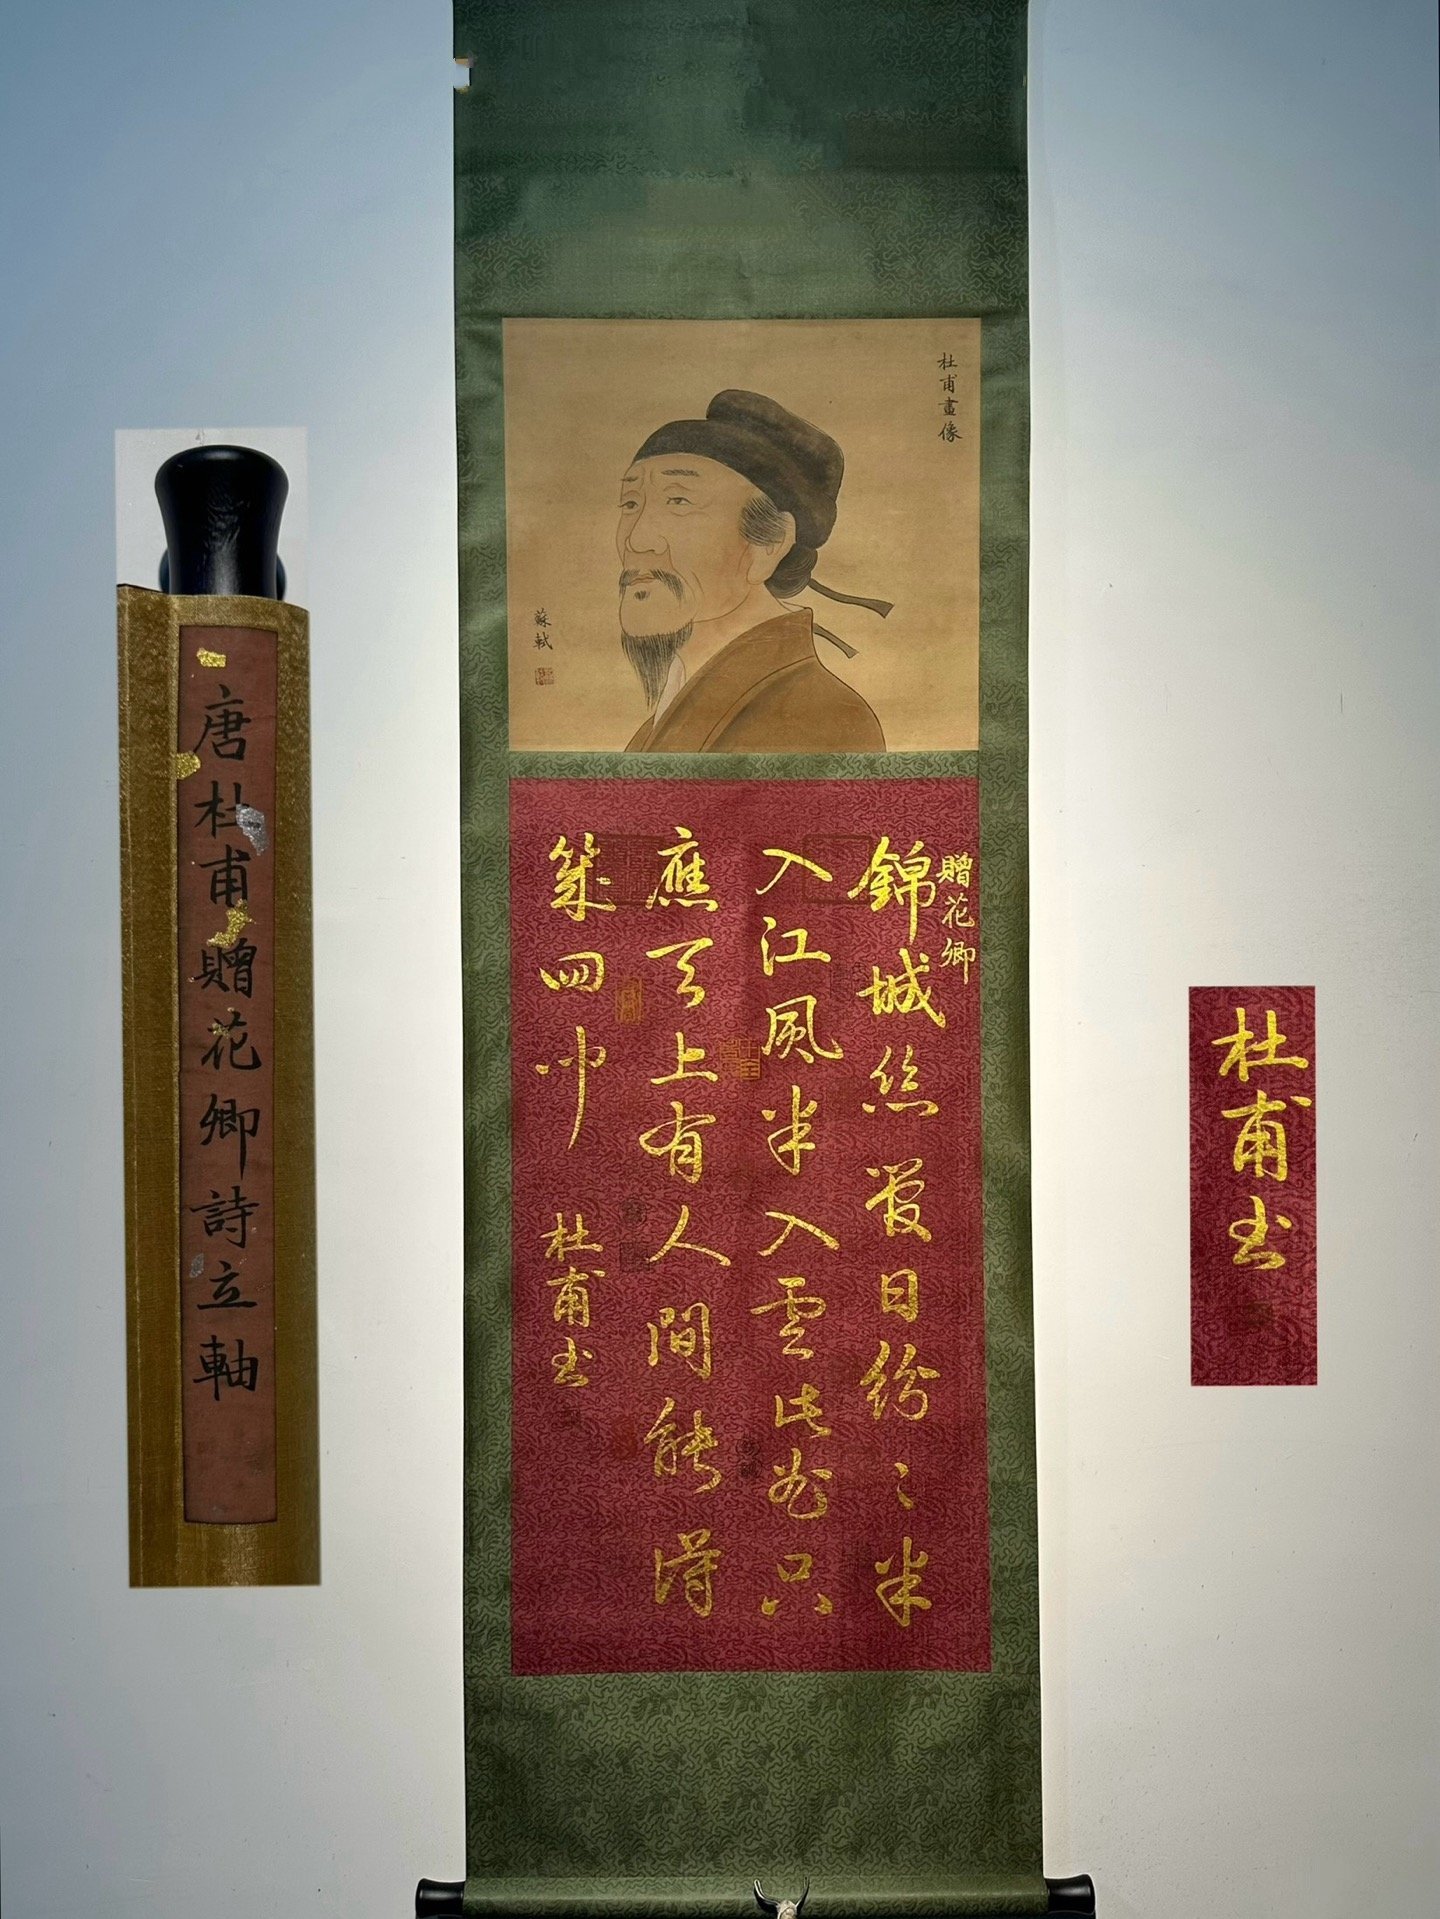 杜甫畫像
蘇軾
贈花卿
錦城絲管日紛〻半
入江風半入雲此曲只
應天上有人間能得
幾回聞
杜甫書
唐杜甫贈花卿詩立軸
杜甫書